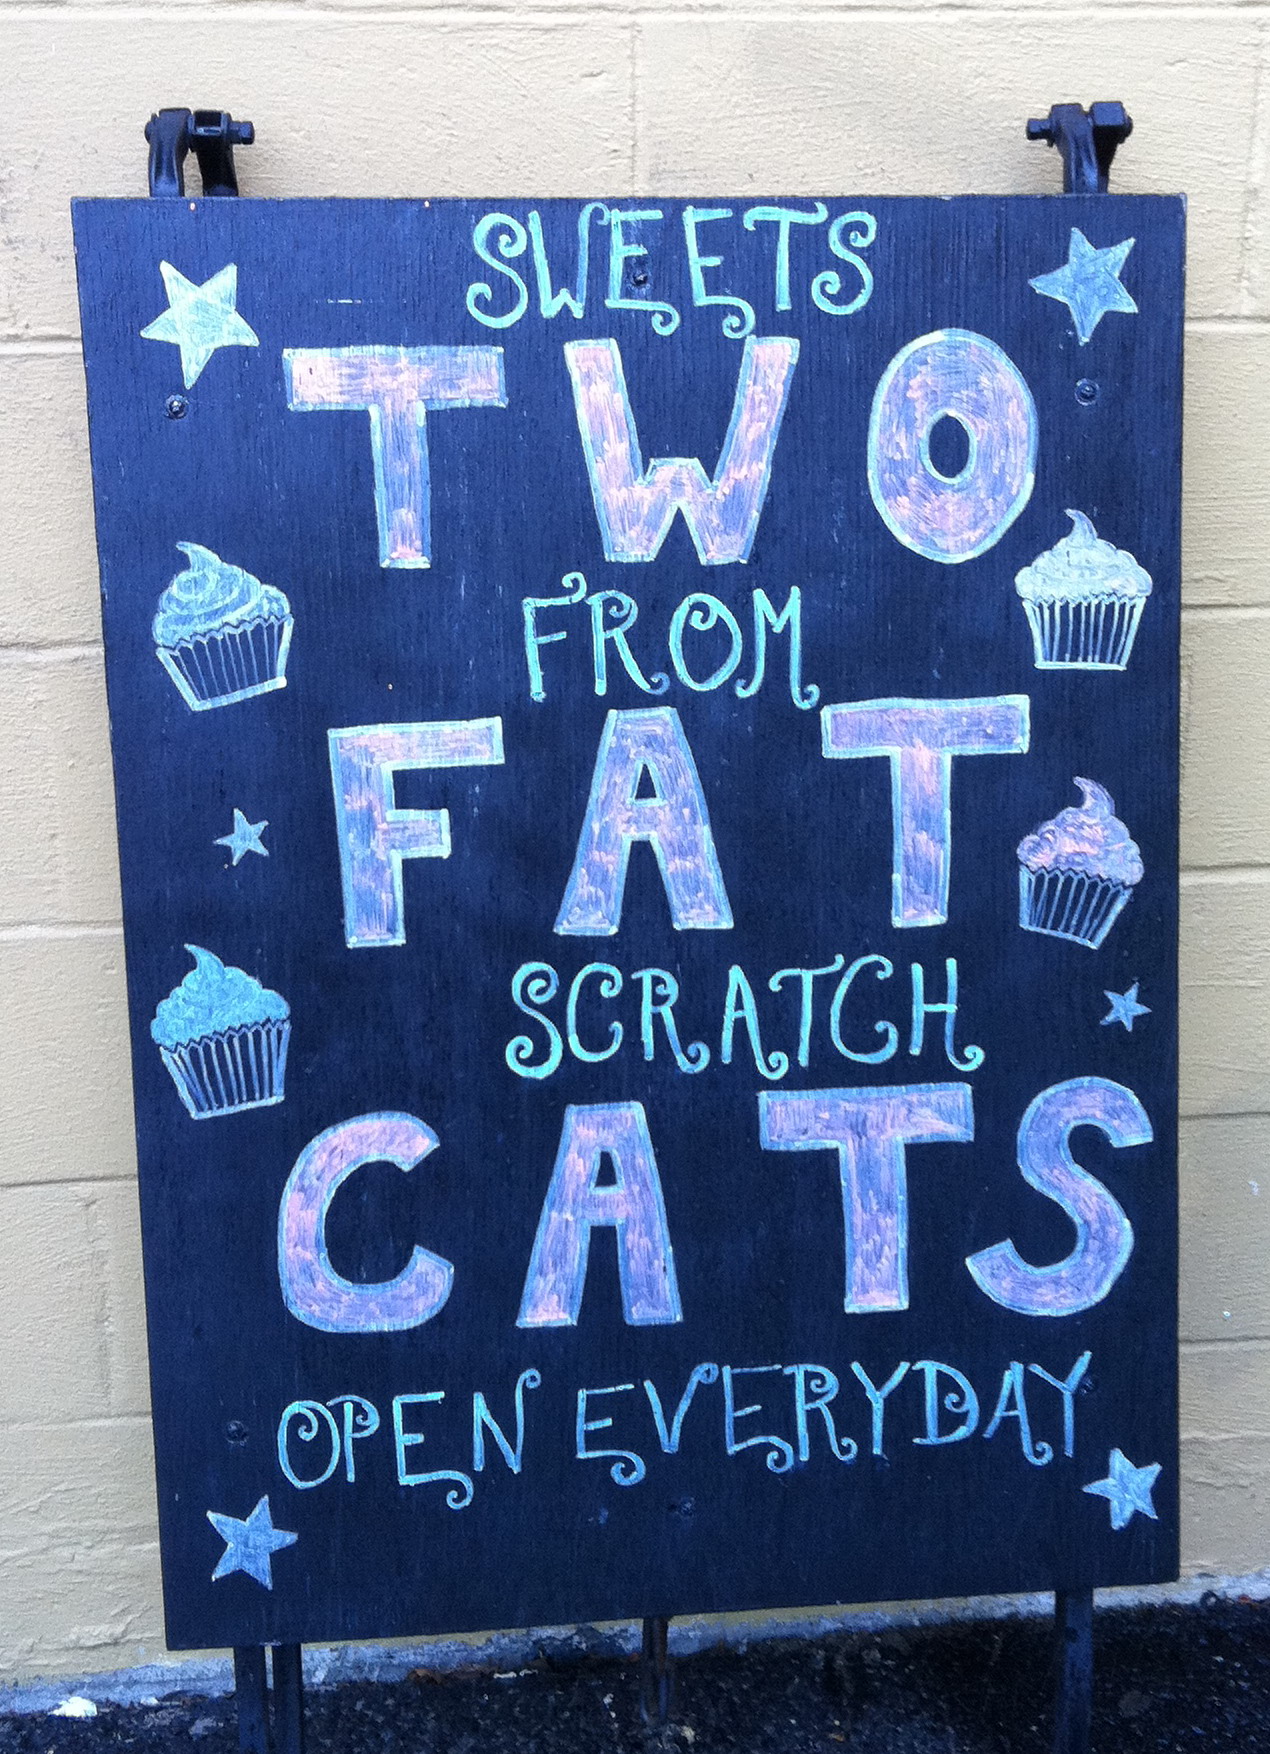 SWEETS
TWO
FROM
FAT
SCRATCH
CATS
OPEN EVERYDAY